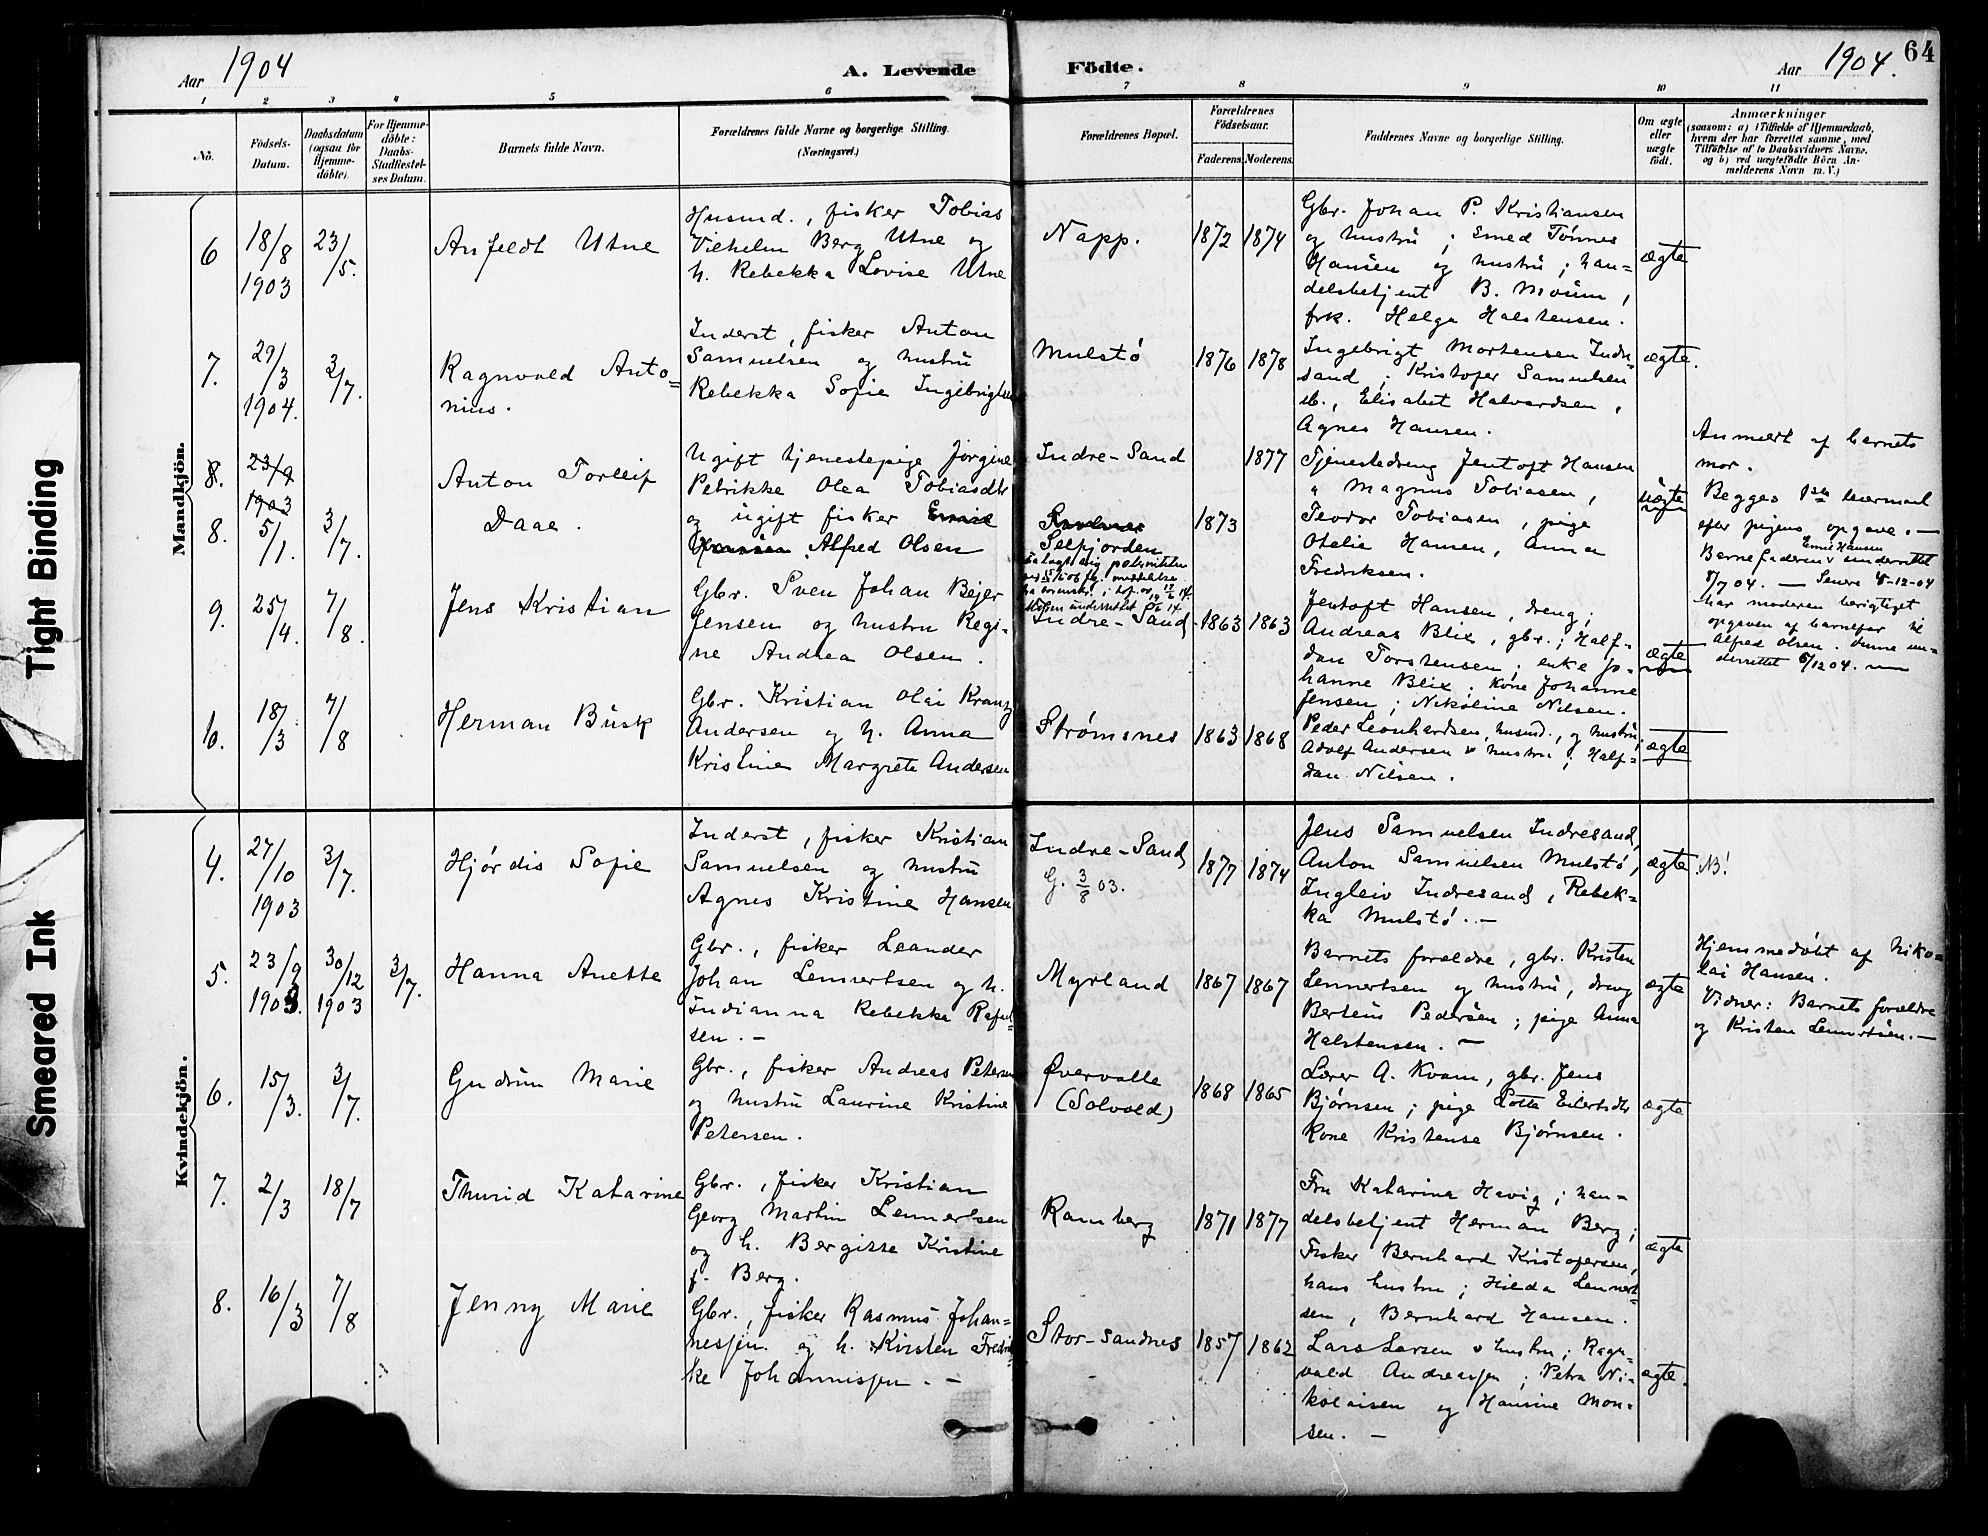 Aar 1904
A. Levende Födte.
Aar 1904.
64
1 2 3 4 5 6 7 8 9 10 11
No.
Födsels-
Datum.
Daabsdatum
(ogsaa for
Hjemme-
döbte).
For Hjemme-
döbte:
Daabs-
Stadfæstel-
ses Datum.
Barnets fulde Navn.
Forældrenes fulde Navne og borgerlige Stilling.
(Næringsvei.)
Forældrenes Bopæl.
Forældrenes
Födselsaar.
Faderens. Moderens.
Faddernes Navne og borgerlige Stilling.
Om ægte
eller
uægte
födt.
Anmærkninger
(saasom: a) i Tilfælde af Hjemmedaab,
hvem der har forrettet samme, med
Tilföielse af to Daabsvidners Navne,
og b) ved uægtefödte Börn An-
melderens Navn m. V.)
Mandkjön.
6
18/8
1903
23/5.
Anfeldt Utne
Husmd., fisker Tobias
Vilhelm Berg Utne og
h. Rebekka Lovise Utne
Napp.
1872 1874
Gbr. Johan P. Kristiansen
og hustru; smed Tønnes
Hansen og hustru; han-
delsbetjent B. Moum,
frk. Helga Halstensen.
ægte
7.
29/3
1904.
3/7.
Ragnvald Anto-
nius.
Inderst, fisker Anton
Samuelsen og hustru
Rebekka Sofie Ingebrigtsen
Mulstø
1876 1878
Ingebrigt Mortensen Indre
sand, Kristofer Samuelsen
sb., Elisabet Halvardsen,
Agnes Hansen.
ægte.
8. 23/9
1903
8. 5/1.
3/7.
Anton Torleif
Daae.
Ugift tjenestepige Jørgine
Petrikke Olea Tobiasdtr
og ugift fisker Emil
Hansen. Alfred Olsen
Indre-Sand
Selfjorden
1877
1873
Tjenestedreng Jentoft Hansen
" Magnus Tobiasen,
Teodor Tobiasen, pige
Otelie Hansen, Anna
Fredriksen.
uægte
Anmeldt af barnets
mor.
Begges 1ste leiermaal
efter pigens opgave. —
Barnefaderen Emil Hansen underrettet
8/7 04. — Senere 5-12-04
har moderen berigtiget
opgaven af barnefar til
Alfred Olsen. Denne un-
derrettet 6/12 04.
9.
25/4.
7/8.
Jens Kristian
Gbr. Sven Johan Bejer
Jensen og hustru Regi-
ne Andrea Olsen.
Indre-Sand
1863 1863
Jentoft Hansen, dreng;
Andreas Blix, gbr.; Half-
dan Torstensen; enke Jo-
hanne Blix; kone Johanne
Jensen; Nikoline Nilsen.
ægte
10.
18/3
7/8
Herman Busk
Gbr. Kristian Olai Krantz
Andersen og h. Anna
Kristine Margrete Andersen
Strømsnes
1863 1868
Peder Leonhardsen, husmd., og hustru;
Adolf Andersen & hustru; Half-
dan Nilsen.
ægte
Kvindekjön.
4.
27/10
1903
3/7.
Hjørdis Sofie
Inderst, fisker Kristian
Samuelsen og hustru
Agnes Kristine Hansen
Indre-Sand
G. 3/8 03.
1877 1874
Jens Samuelsen Indresand,
Anton Samuelsen Mulstø,
Ingleiv Indresand, Rebek-
ka Mulstø. —
ægte
NB!
5.
23/9
1903.
30/12
1903
3/7.
Hanna Anette
Gbr., fisker Leander
Johan Lennertsen og h.
Indianna Rebekka Rafael-
sen. —
Myrland
1867 1867
Barnets forældre, gbr. Kristen
Lennertsen og hustru, dreng
Berteus Pedersen; pige Anna
Halstensen. —
ægte
Hjemmedøbt af Niko-
lai Hansen.
Vidner: Barnets forældre
og Kristen Lennertsen. —
6.
15/3.
3/7.
Gudrun Marie
Gbr., fisker Andreas Petersen
og hustru Laurine Kristine
Petersen.
Øvervalle
(Solvold)
1868 1865
Lærer A. Kvam, gbr. Jens
Bjørnsen; pige Lotte Eilertsdtr
Kone Kristense Bjørnsen.
ægte
7.
2/3
18/7
Thurid Katarine
Gbr., fisker Kristian
Georg Martin Lennertsen
og h. Bergitte Kristine
f. Berg.
Ramberg
1871 1877
Fru Katarina Havig; han-
delsbetjent Herman Berg;
Fisker Bernhard Kristofersen,
hans hustru; Hilda Lennert-
sen, Bernhard Hansen.
ægte
8.
16/3
7/8
Jenny Marie
Gbr., fisker Rasmus Johan-
nessen og h. Kirsten Fredrik-
ke Johannissen. —
Stor-sandnes
1857 1862
Lars Larsen & hustru; Ragn-
vald Andreassen; Petra Ni-
kolaisen og Hansine Mon-
sen. —
ægte.
Tight Binding
Smeared Ink